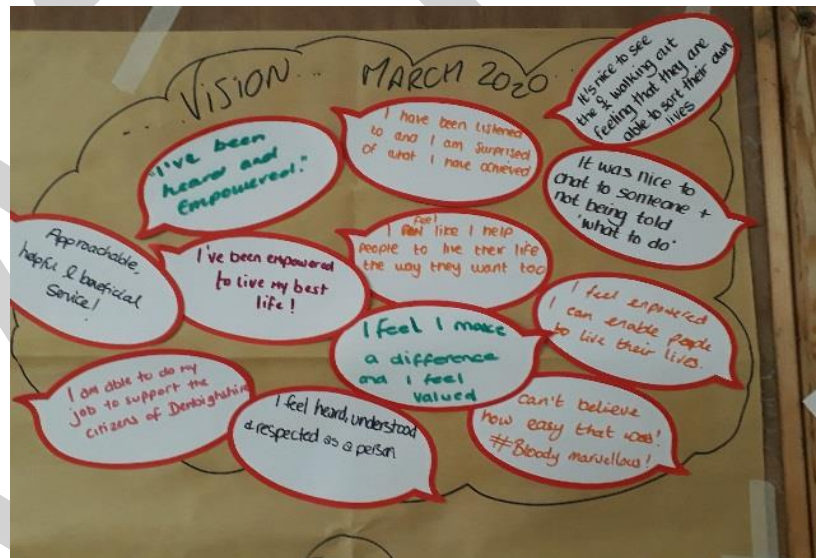 ... VISION... MARCH 2020...
It's nice to see
the & walking out
feeling that they are
able to sort their own
lives
"I've been
heard and
Empowered."
I have been listened
to and I am surprised
of what I have achieved
It was nice to
chat to someone +
not being told
'what to do'
Approachable,
helpful & beneficial
service!
I've been empowered
to live my best
life!
I feel like I help
people to live their life
the way they want too
I feel empowered
I can enable people
to live their lives.
I feel I make
a difference
and I feel
valued
I am able to do my
job to support the
citizens of Denbighshire
I feel heard, understood
& respected as a person
can't believe
how easy that was!
#Bloody marvellous!